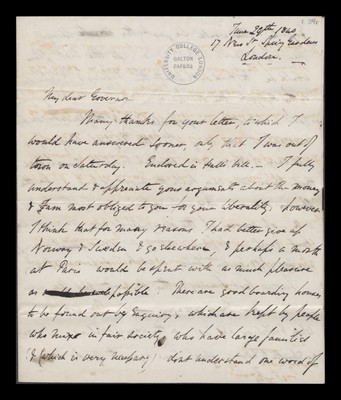 June 29th 1840
17 New St. Spring Gardens
London.
UNIVERSITY COLLEGE LONDON
GALTON PAPERS
My dear Governor
Many thanks for your letter, to which I
would have answered sooner, only that I was out of
town on Saturday. Enclosed is bill. — I fully
understand & appreciate your arguments about the money
& I am most obliged to you for your liberality, however
I think that for many reasons I had better give up
Norway & Sweden & go elsewhere, & perhaps a month
at Paris would be spent with as much pleasure
as possible. There are good boarding houses
to be found out by enquiry, which are kept by people
who mixe in fair society, who have large families
& (which is very necessary) dont understand one word of